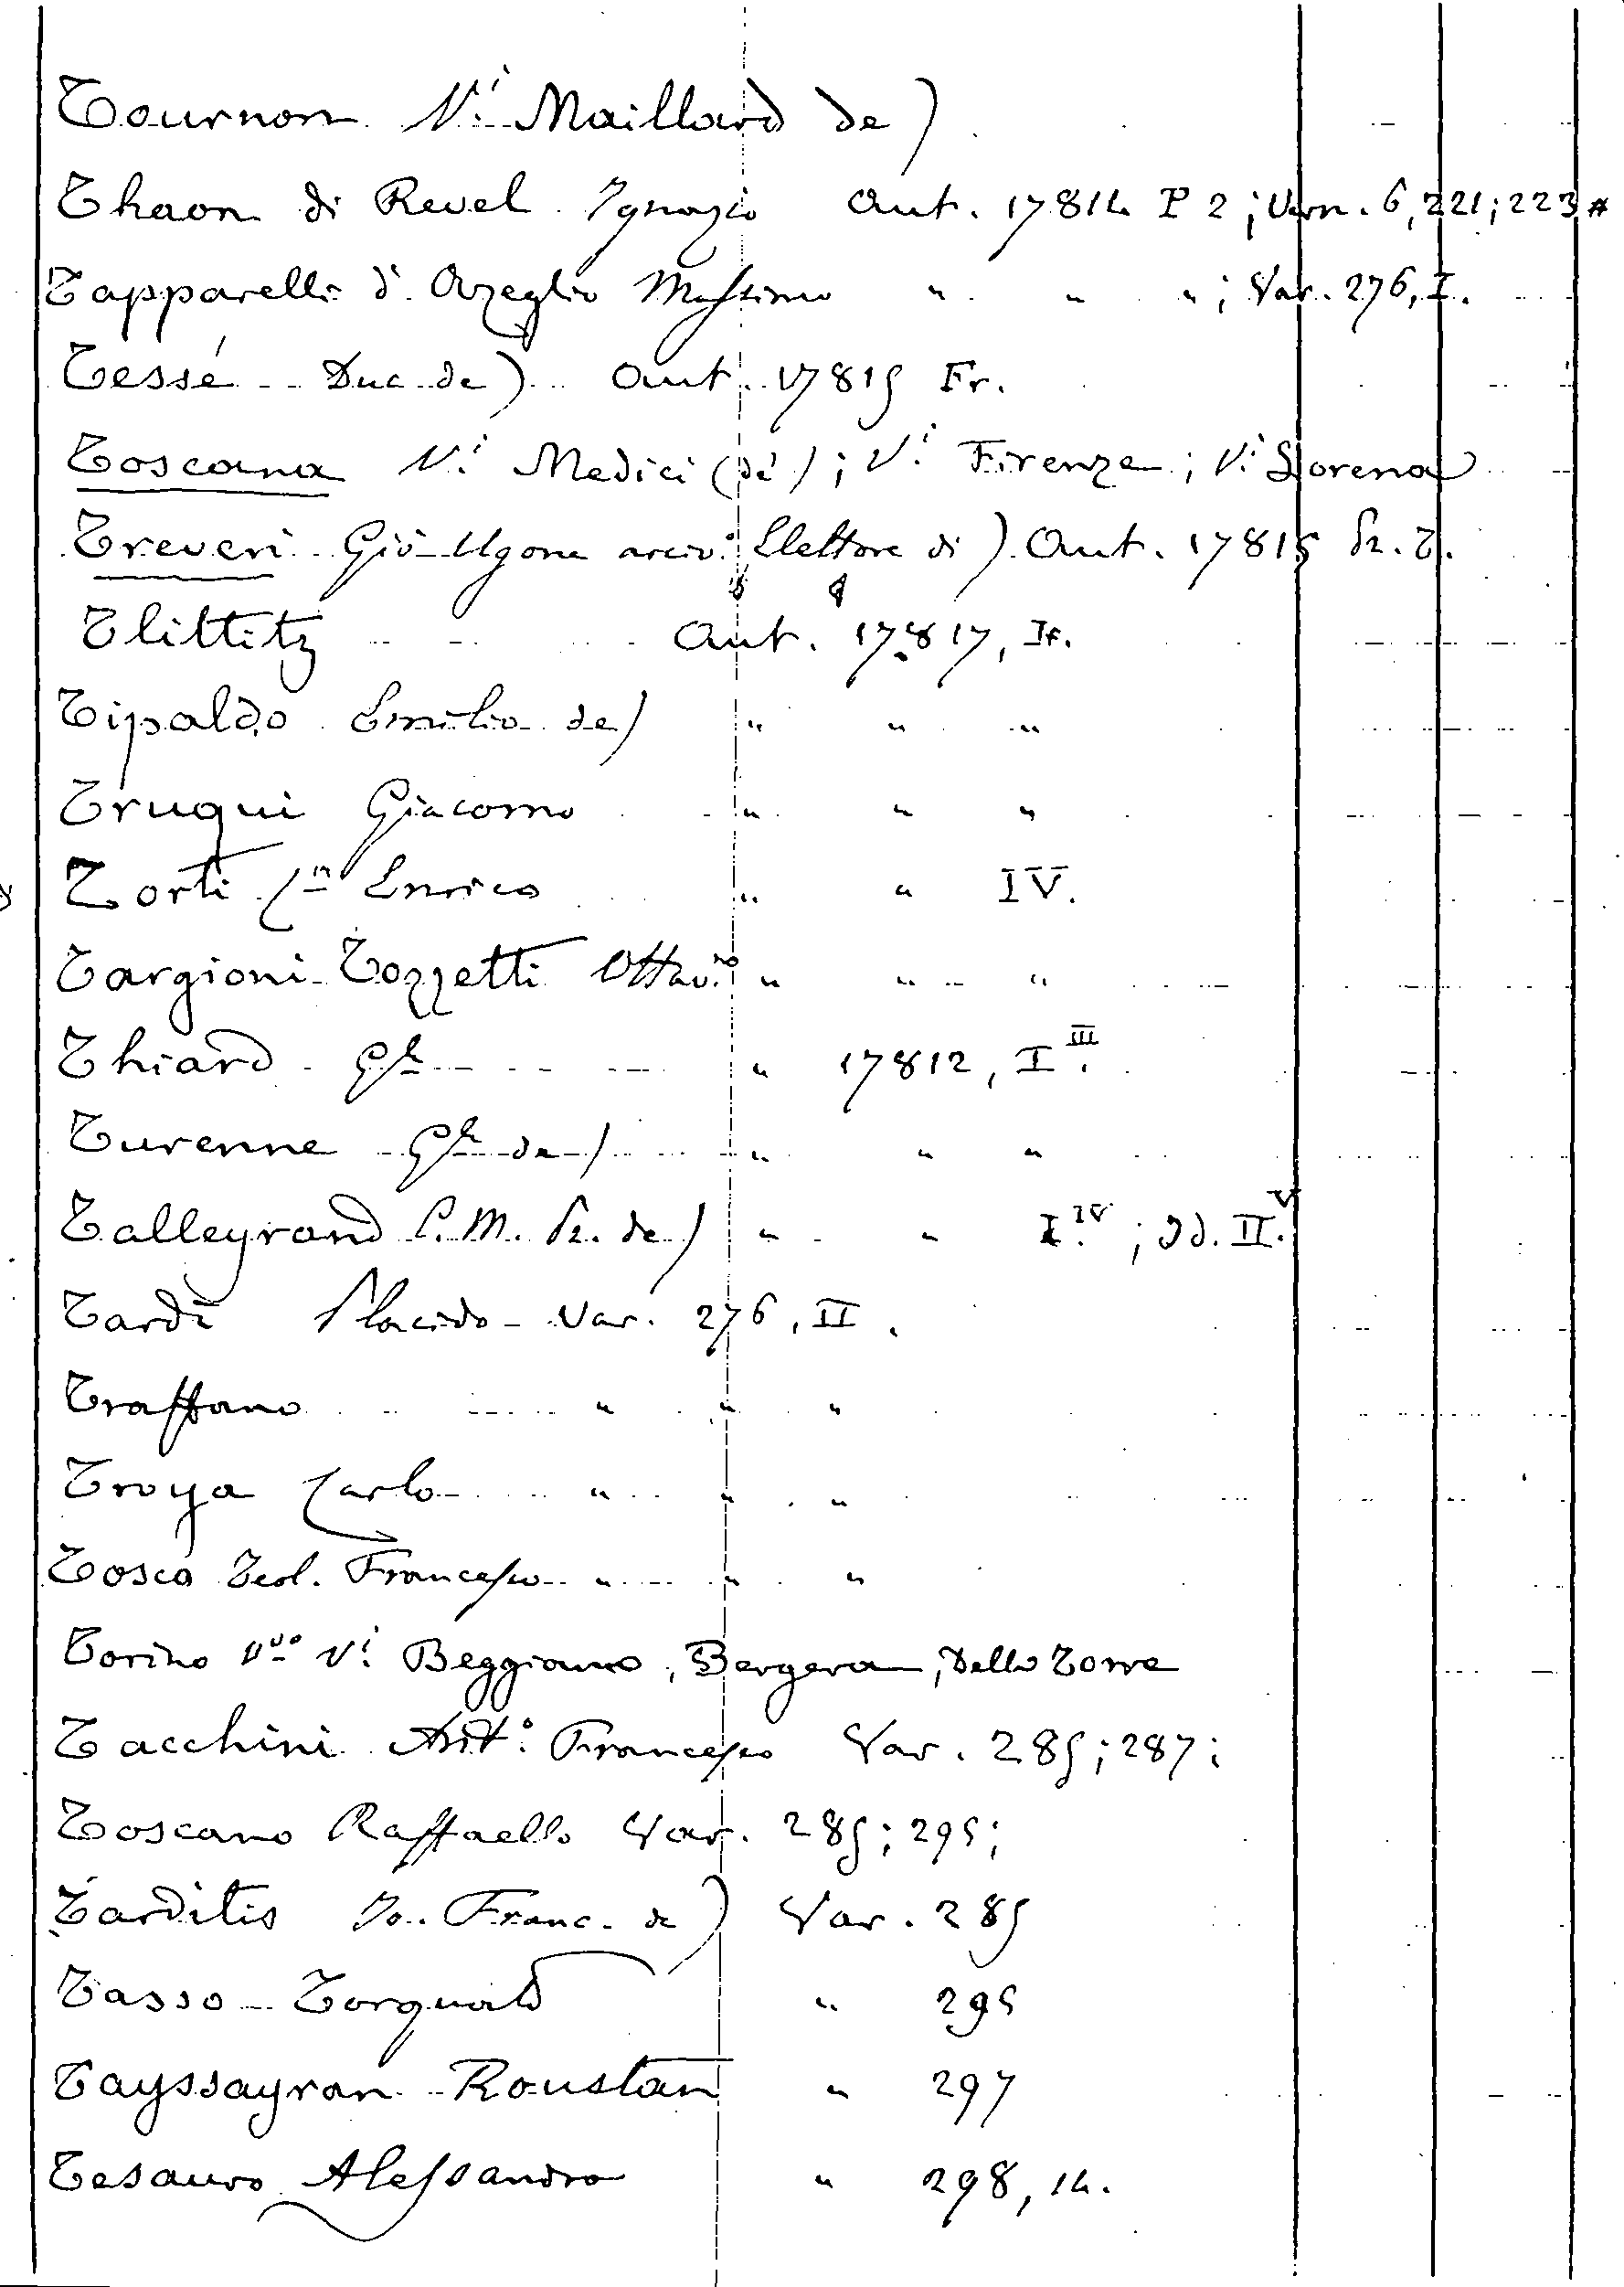 Tournon V.i Maillard de)
Thaon di Revel Ignazio Aut. 17814 P 2; Vern. 6, 221; 223 *
Tapparelli d'Azeglio Massimo " " "; Var. 276, I.
Tessé Duc de) Aut. 17815 Fr.
Toscana V.i Medici (de'); V.i Firenze; V.i Lorena
Treveri Giô Ugone arciv.o Elettore di) Aut. 17815 Pr. T.
Tlittitz Aut. 17817, If.
Tipaldo Emilio de) " " "
Truqui Giacomo " " "
Torti Enrico " " IV.
Targioni-Tozzetti Ottav.no " " "
Thiard G.le " 17812, I.III
Turenne G.le de) " " "
Talleyrand C. M. Pr. de) " " I.IV; Id. II.V
Tardi Placido Var. 276, II.
Traffano " " "
Troya Carlo " " "
Tosco Teol. Francesco " " "
Torino V.i Beggiamo, Bergera, Della Torre
Tacchini Ant.o Francesco Var. 285; 287;
Toscano Raffaello Var. 285; 295;
Tarditis Jo. Franc. de) Var. 285
Tasso Torquato " 295
Tayssayran Roustan " 297
Tesauro Alessandro " 298, 14.